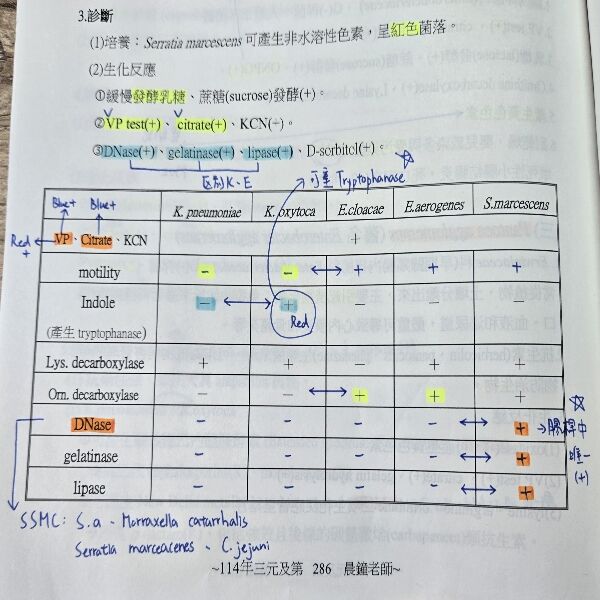 3.診斷
(1)培養：Serratia marcescens 可產生非水溶性色素，呈紅色菌落。
(2)生化反應
①緩慢發酵乳糖、蔗糖(sucrose)發酵(+)。
②VP test(+)、citrate(+)、KCN(+)。
③DNase(+)、gelatinase(+)、lipase(+)、D-sorbitol(+)。
區別K、E
可產Tryptophanase
Blue+ Blue+
K. pneumoniae K. oxytoca E.cloacae E.aerogenes S.marcescens
Red + VP、Citrate、KCN +
motility - - + + +
Indole - + - - -
Red
(產生 tryptophanase)
Lys. decarboxylase + + - + +
Orn. decarboxylase - - + + +
DNase - - - - + 腸桿中唯一(+)
gelatinase - - - - +
lipase - - - - +
SSMC: S.a、Morraxella catarrhalis
Serratia marceacenes、C.jejuni
~114年三元及第 286 晨鐘老師~